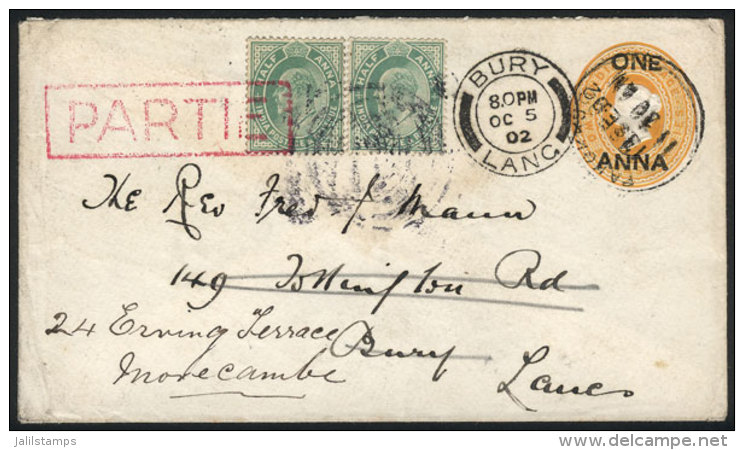 HALF ANNA
HALF ANNA
BURY
8.0PM
OC 5
02
LANC
ONE
ANNA
PARTI
The Rev Fred J Mann
149 Tottington Rd
24 Erving Terrace Bury
Morecambe Lancs
jalilstamps
delcampe.net